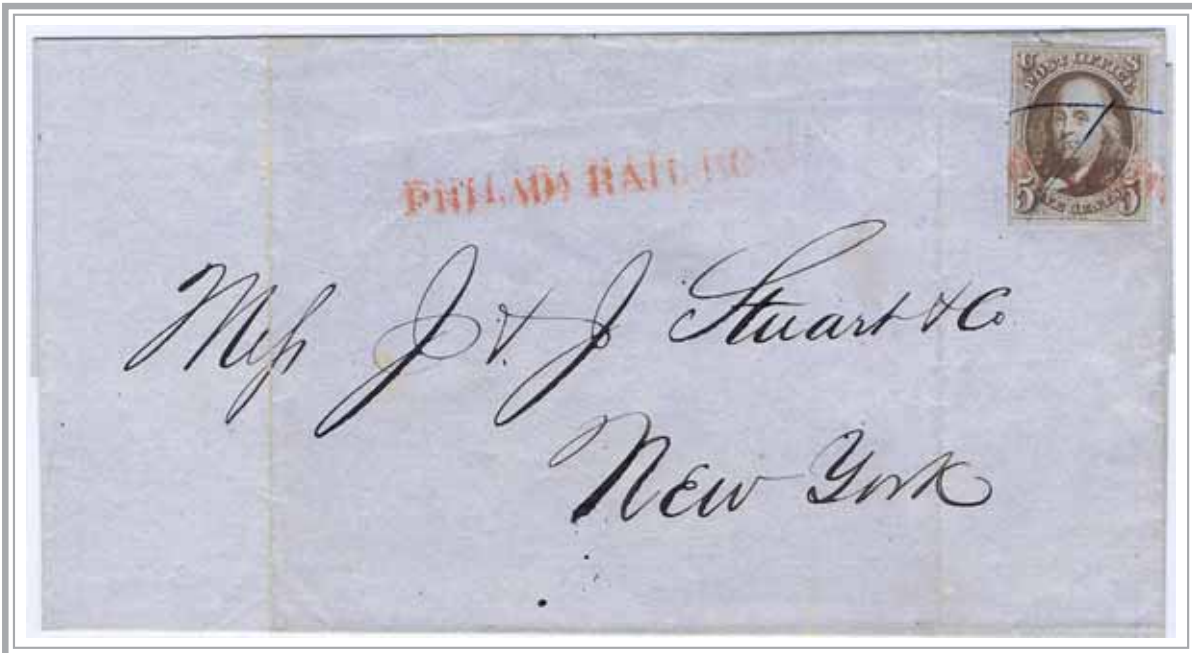 U S
POST OFFICE
5 FIVE CENTS 5
PHILADA RAIL RO
Mess J. & J. Stuart & Co.
New York